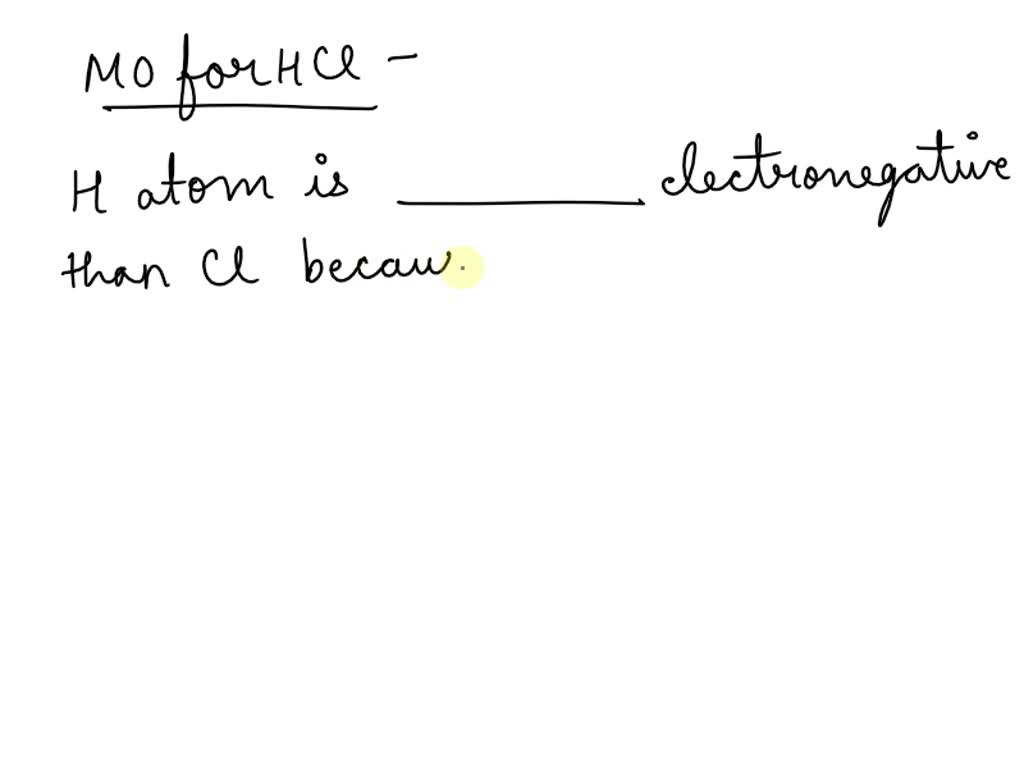 MO for HCl -
H atom is ________ electronegative
than Cl becau